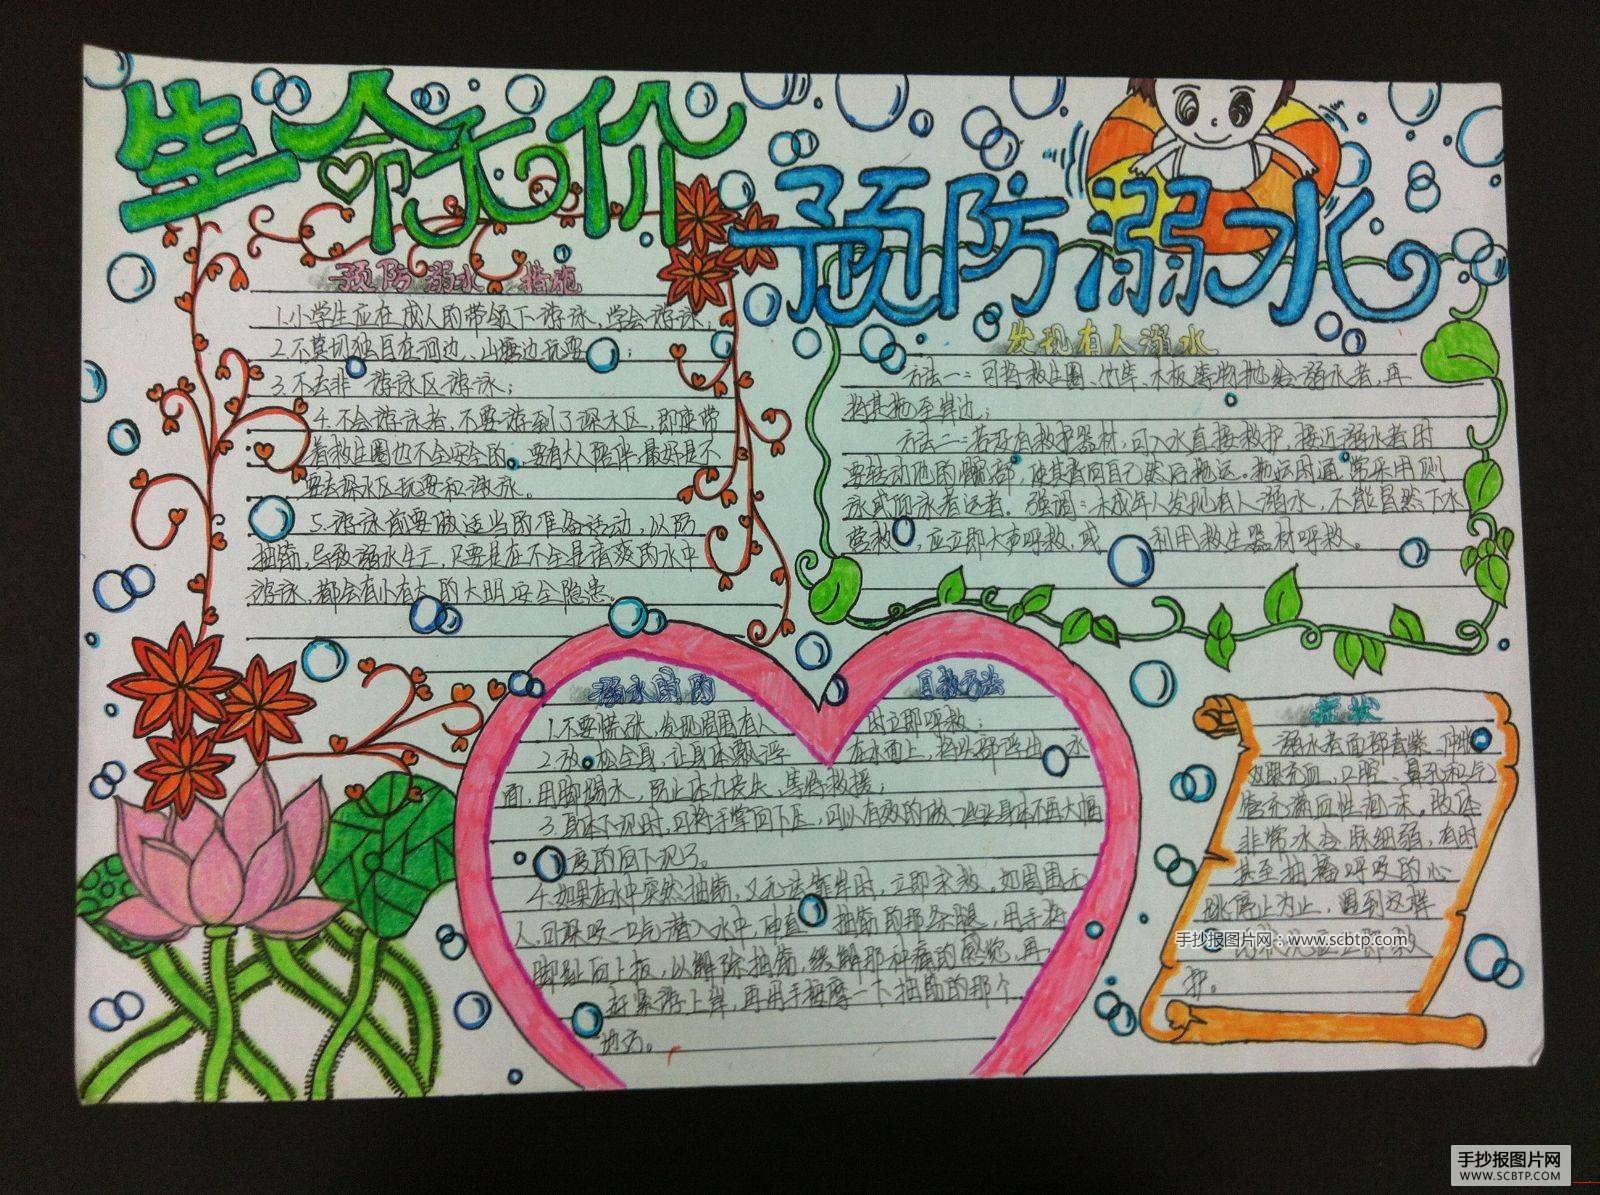 生命无价
预防溺水
预防溺水 措施
1.小学生应在成人的带领下游泳,学会游泳;
2.不莫切独自在河边、山塘边玩耍;
3.不去非游泳区游泳;
4.不会游泳者,不要游到了深水区,即使带
着救生圈也不会安全的。要有大人陪伴,最好是不
要去深水区玩耍和游泳。
5.游泳前要做适当的准备活动,以防
抽筋,导致溺水生亡,只要是在不全是清爽的水中
游泳,都会有小有大的大明安全隐患。
发现有人溺水
方法一:可将救生圈、竹竿、木板等物抛给溺水者,再
将其拖至岸边;
方法二:若没有救护器材,可入水直接救护,接近溺水者时
要转动他的髋部,使其背向自己然后拖运。拖运时通常采用侧
泳或仰泳者运者。强调:未成年人发现有人溺水,不能冒然下水
营救,应立即大声呼救,或利用救生器材呼救。
溺水时的 自救方法
1.不要慌张,发现周围有人时立即呼救;
2.放松全身,让身体飘浮在水面上,将头部浮出水
面,用脚踢水,防止体力丧失,等待救援;
3.身体下沉时,可将手掌向下压,可以有效的做 让身体不再大幅
度的向下沉了。
4.如果在水中突然抽筋,又无法靠岸时,立即求救。如周围无
人,可深吸一口气潜入水中,伸直抽筋的那条腿,用手将
脚趾向上扳,以解除抽筋,缓解那种痛的感觉,再
赶紧游上岸,再用手按摩一下抽筋的那个
地方。
症状
溺水者面部青紫、肿胀
双眼充血,口腔、鼻孔和气
管充满血性泡沫。肢体
非常冰冷,脉细弱,有时
甚至抽搐呼吸的心
跳停止为止,遇到这样
的状况应立即求
护。
手抄报图片网：www.scbtp.com
手抄报图片网
WWW.SCBTP.COM